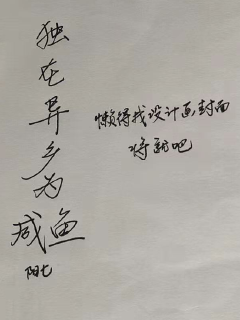 独在异乡为咸鱼
阳七
懒得找设计画封面
将就吧